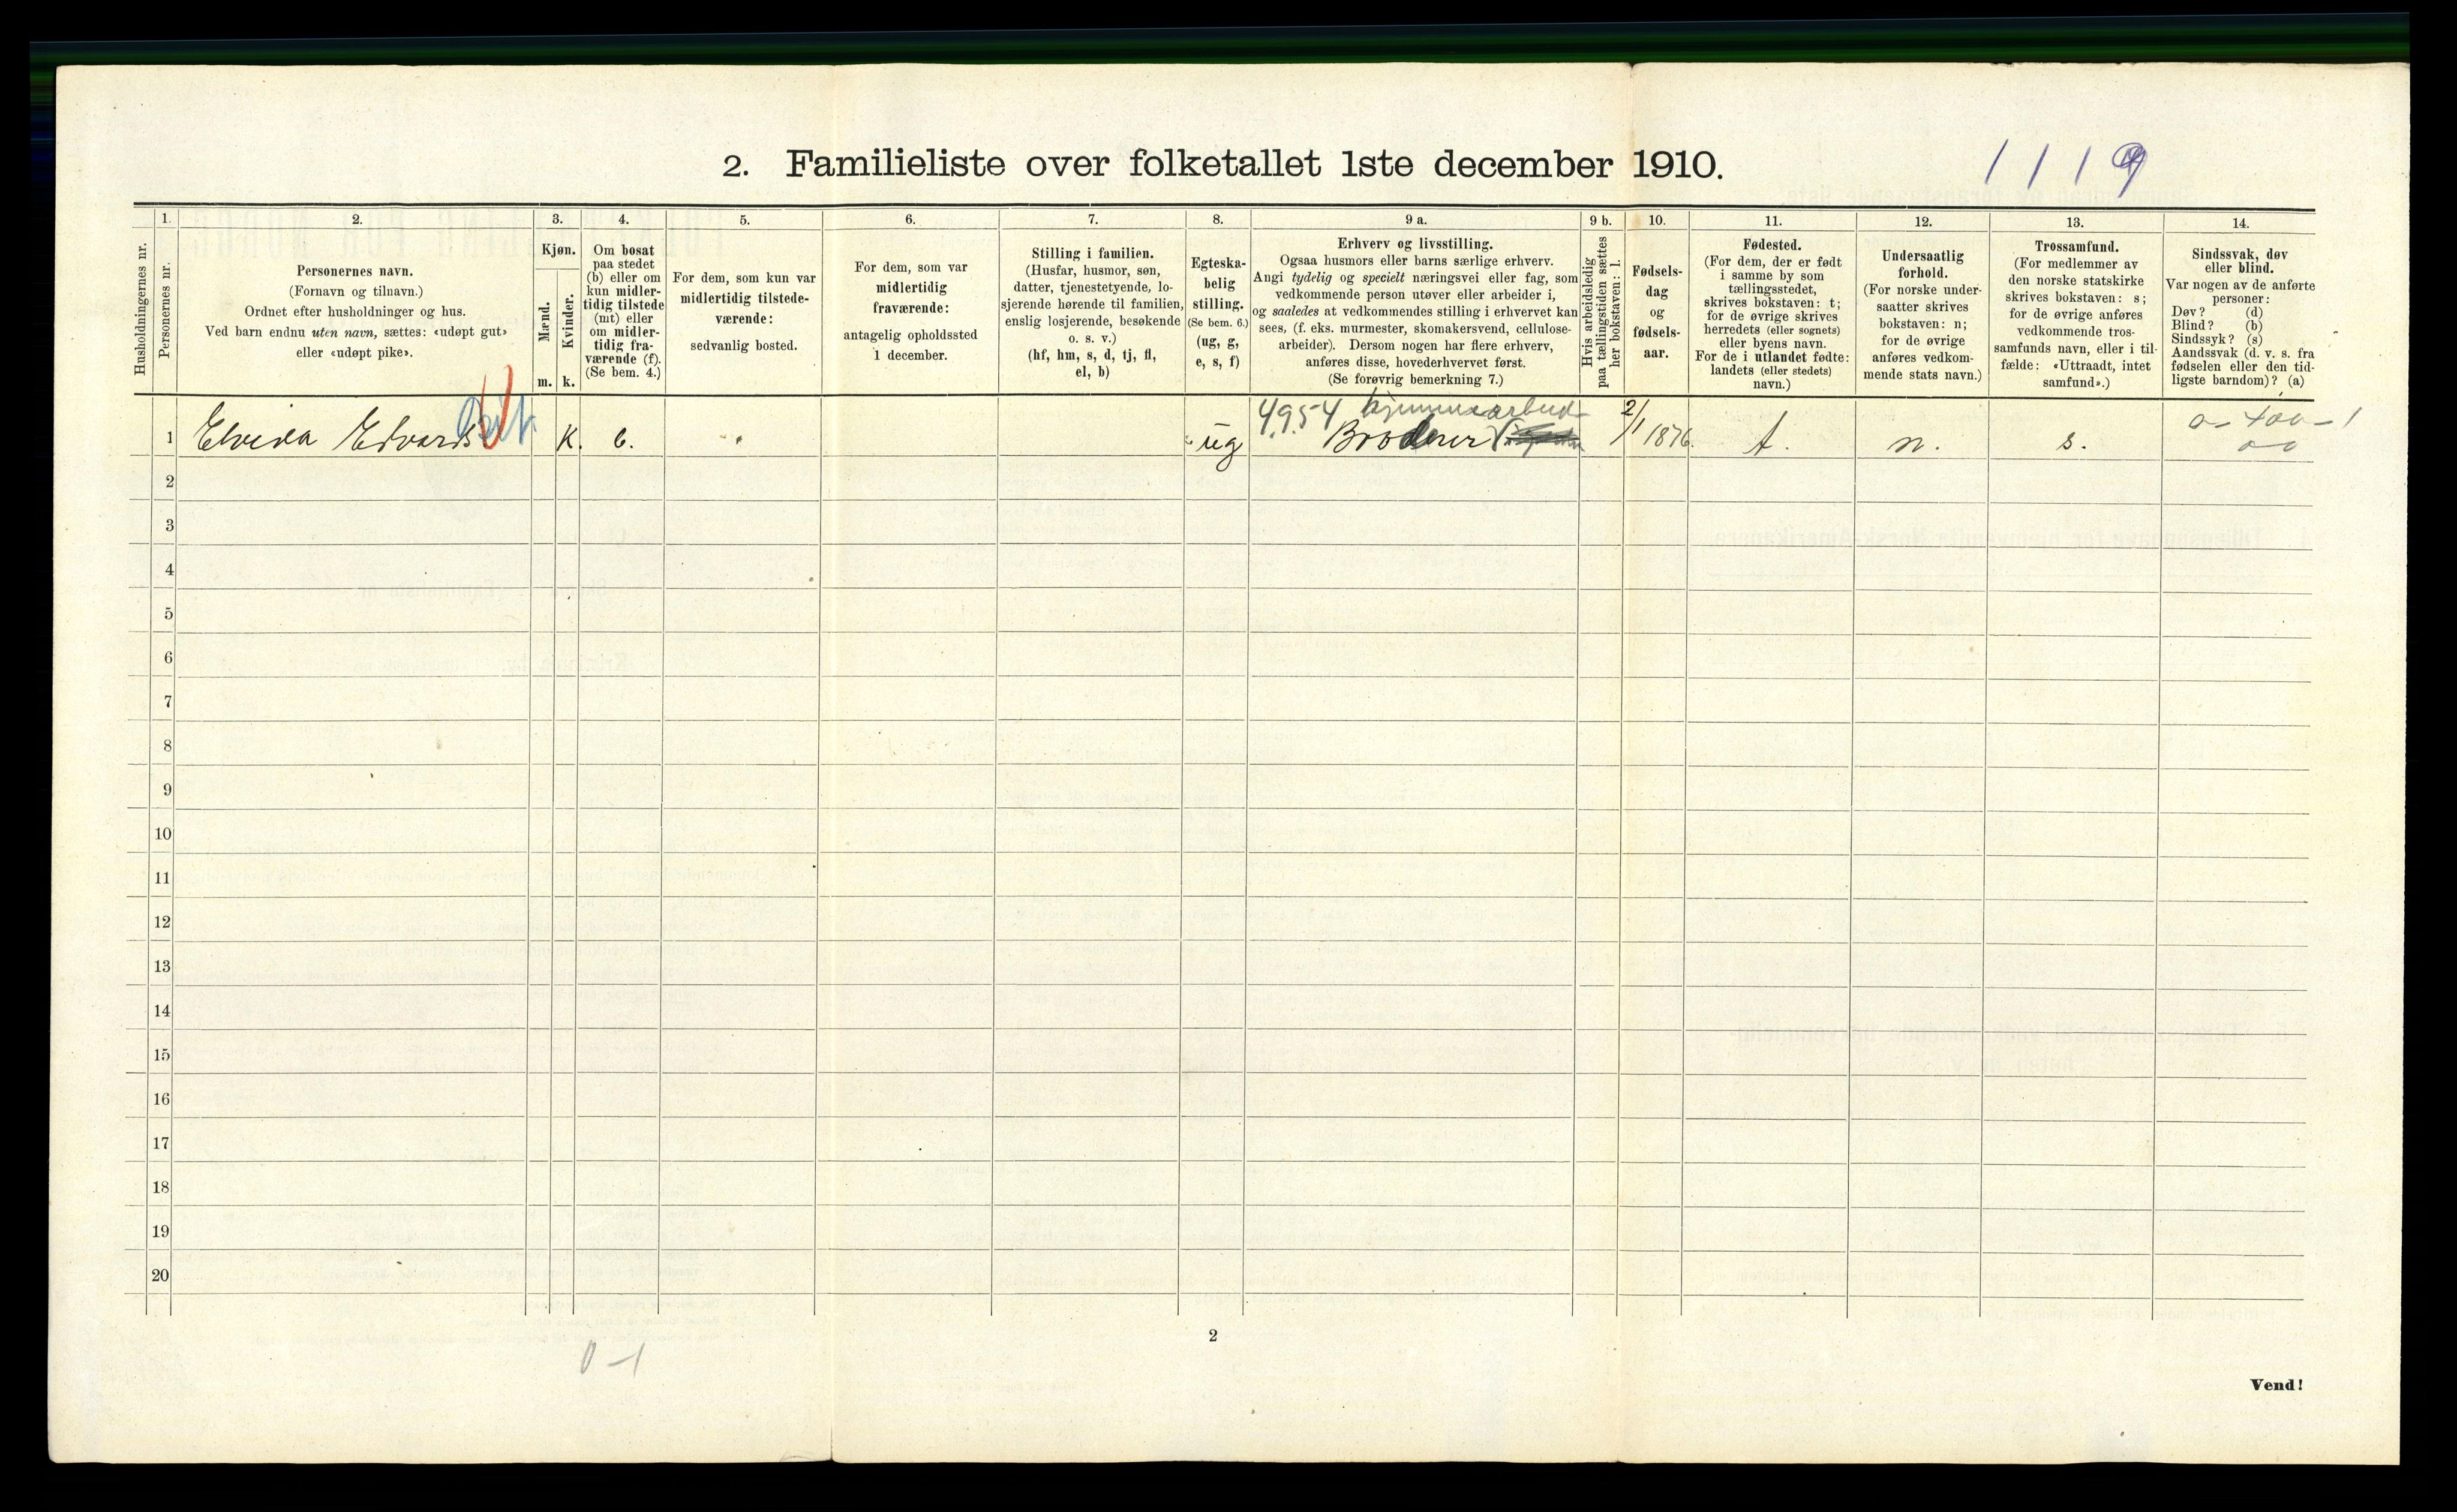 2. Familieliste over folketallet 1ste december 1910.
1119
Husholdningernes nr.
1.
Personernes nr.
2.
Personernes navn.
(Fornavn og tilnavn.)
Ordnet efter husholdninger og hus.
Ved barn endnu uten navn, sættes: «udøpt gut»
eller «udøpt pike».
3.
Kjøn.
Mænd.
Kvinder.
m. k.
4.
Om bosat
paa stedet
(b) eller om
kun midler-
tidig tilstede
(mt) eller
om midler-
tidig fra-
værende (f).
(Se bem. 4.)
5.
For dem, som kun var
midlertidig tilstede-
værende:
sedvanlig bosted.
6.
For dem, som var
midlertidig
fraværende:
antagelig opholdssted
1 december.
7.
Stilling i familien.
(Husfar, husmor, søn,
datter, tjenestetyende, lo-
sjerende hørende til familien,
enslig losjerende, besøkende
o. s. v.)
(hf, hm, s, d, tj, fl,
el, b)
8.
Egteska-
belig
stilling.
(Se bem. 6.)
(ug, g,
e, s, f)
9 a.
Erhverv og livsstilling.
Ogsaa husmors eller barns særlige erhverv.
Angi tydelig og specielt næringsvei eller fag, som
vedkommende person utøver eller arbeider i,
og saaledes at vedkommendes stilling i erhvervet kan
sees, (f. eks. murmester, skomakersvend, cellulose-
arbeider). Dersom nogen har flere erhverv,
anføres disse, hovederhvervet først.
(Se forøvrig bemerkning 7.)
9 b.
Hvis arbeidsledig
paa tællingstiden sættes
her bokstaven: l.
10.
Fødsels-
dag
og
fødsels-
aar.
11.
Fødested.
(For dem, der er født
i samme by som
tællingsstedet,
skrives bokstaven: t;
for de øvrige skrives
herredets (eller sognets)
eller byens navn.
For de i utlandet fødte:
landets (eller stedets)
navn.)
12.
Undersaatlig
forhold.
(For norske under-
saatter skrives
bokstaven: n;
for de øvrige
anføres vedkom-
mende stats navn.)
13.
Trossamfund.
(For medlemmer av
den norske statskirke
skrives bokstaven: s;
for de øvrige anføres
vedkommende tros-
samfunds navn, eller i til-
fælde: «Uttraadt, intet
samfund».)
14.
Sindssvak, døv
eller blind.
Var nogen av de anførte
personer:
Døv? (d)
Blind? (b)
Sindssyk? (s)
Aandssvak (d. v. s. fra
fødselen eller den tid-
ligste barndom)? (a)
4954 hjemmearbeid 0-400-1
1 Elvida K. b. ug 2/1 1876. t. n. s. 00
2
3
4
5
6
7
8
9
10
11
12
13
14
15
16
17
18
19
20
2
0-1
Vend!